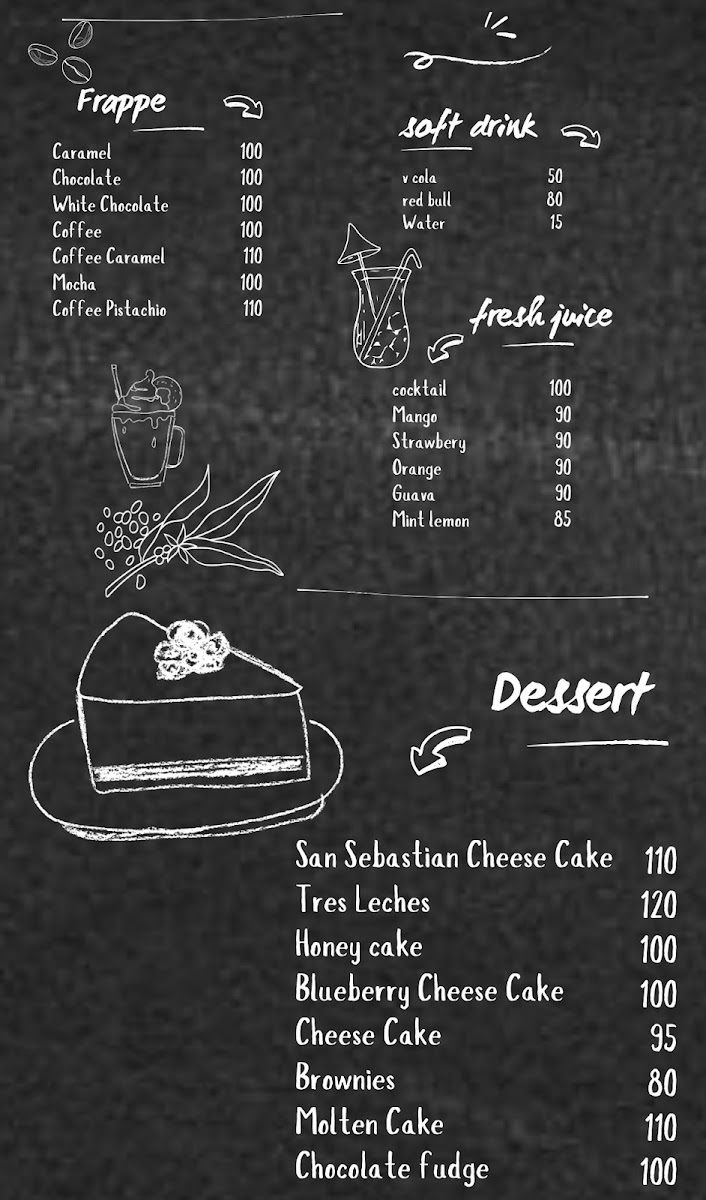 Frappe
Caramel 100
Chocolate 100
White Chocolate 100
Coffee 100
Coffee Caramel 110
Mocha 100
Coffee Pistachio 110
soft drink
v cola 50
red bull 80
Water 15
fresh juice
cocktail 100
Mango 90
Strawbery 90
Orange 90
Guava 90
Mint lemon 85
Dessert
San Sebastian Cheese Cake 110
Tres Leches 120
Honey cake 100
Blueberry Cheese Cake 100
Cheese Cake 95
Brownies 80
Molten Cake 110
Chocolate fudge 100